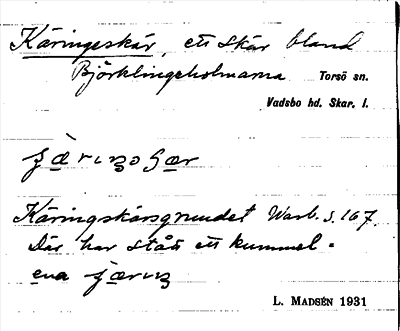 Käringeskär, ett skär bland
Björklingeholmarna. Torsö sn.
Vadsbo hd. Skar. l.
Käringskärsgrundet Warb. s. 167.
Där har stått ett kummel.
ena
L. MADSÉN 1931